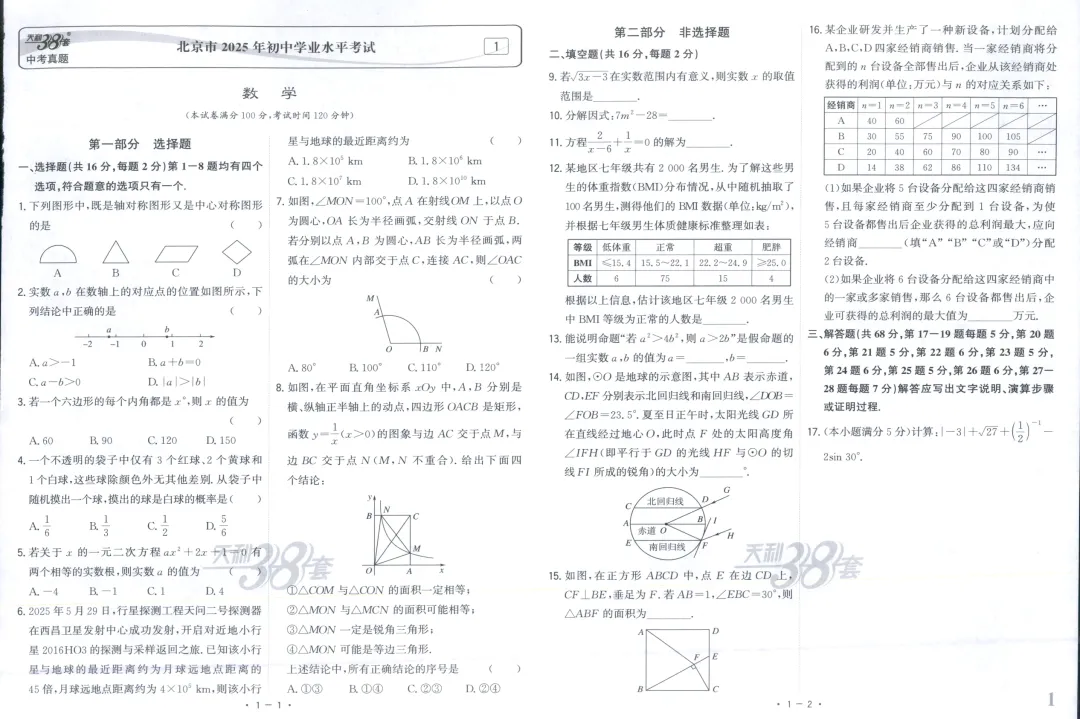 天利38套
中考真题
北京市 2025 年初中学业水平考试
1
数 学
(本试卷满分 100 分,考试时间 120 分钟)
第一部分 选择题
一、选择题(共 16 分,每题 2 分)第 1—8 题均有四个
选项,符合题意的选项只有一个.
1. 下列图形中,既是轴对称图形又是中心对称图形
的是 ( )
A B C D
2. 实数 a,b 在数轴上的对应点的位置如图所示,下
列结论中正确的是 ( )
a b
-2 -1 0 1 2
A. a>-1 B. a+b=0
C. a-b>0 D. |a|>|b|
3. 若一个六边形的每个内角都是 x°,则 x 的值为
( )
A. 60 B. 90 C. 120 D. 150
4. 一个不透明的袋子中仅有 3 个红球、2 个黄球和
1 个白球,这些球除颜色外无其他差别. 从袋子中
随机摸出一个球,摸出的球是白球的概率是( )
A. 1/6 B. 1/3 C. 1/2 D. 5/6
5. 若关于 x 的一元二次方程 ax²+2x+1=0 有
两个相等的实数根,则实数 a 的值为 ( )
A. -4 B. -1 C. 1 D. 4
6. 2025 年 5 月 29 日,行星探测工程天问二号探测器
在西昌卫星发射中心成功发射,开启对近地小行
星 2016HO3 的探测与采样返回之旅. 已知该小行
星与地球的最近距离约为月球远地点距离的
45 倍,月球远地点距离约为 4×10⁵ km,则该小行
星与地球的最近距离约为 ( )
A. 1.8×10⁵ km B. 1.8×10⁶ km
C. 1.8×10⁷ km D. 1.8×10¹⁰ km
7. 如图,∠MON=100°,点 A 在射线OM 上,以点O
为圆心,OA 长为半径画弧,交射线 ON 于点 B.
若分别以点 A,B 为圆心,AB 长为半径画弧,两
弧在∠MON 内部交于点 C,连接 AC,则∠OAC
的大小为 ( )
M
A
O B N
A. 80° B. 100° C. 110° D. 120°
8. 如图,在平面直角坐标系 xOy 中,A,B 分别是
横、纵轴正半轴上的动点,四边形 OACB 是矩形,
函数 y=1/x(x>0)的图象与边 AC 交于点 M,与
边 BC 交于点 N(M,N 不重合). 给出下面四
个结论:
y
B N C
M
O A x
①△COM 与△CON 的面积一定相等;
②△MON 与△MCN 的面积可能相等;
③△MON 一定是锐角三角形;
④△MON 可能是等边三角形.
上述结论中,所有正确结论的序号是 ( )
A. ①③ B. ①④ C. ②③ D. ②④
· 1－1 ·
第二部分 非选择题
二、填空题(共 16 分,每题 2 分)
9. 若√(3x-3)在实数范围内有意义,则实数 x 的取值
范围是______.
10. 分解因式:7m²-28=______.
11. 方程 2/(x-6)+1/x=0 的解为______.
12. 某地区七年级共有 2 000 名男生. 为了解这些男
生的体重指数(BMI)分布情况,从中随机抽取了
100 名男生,测得他们的 BMI 数据(单位:kg/m²),
并根据七年级男生体质健康标准整理如表:
等级 低体重 正常 超重 肥胖
BMI ≤15.4 15.5~22.1 22.2~24.9 ≥25.0
人数 6 75 15 4
根据以上信息,估计该地区七年级 2 000 名男生
中 BMI 等级为正常的人数是______.
13. 能说明命题“若 a²>4b²,则 a>2b”是假命题的
一组实数 a,b 的值为 a=______,b=______.
14. 如图,⊙O 是地球的示意图,其中 AB 表示赤道,
CD,EF 分别表示北回归线和南回归线,∠DOB=
∠FOB=23.5°. 夏至日正午时,太阳光线 GD 所
在直线经过地心 O,此时点 F 处的太阳高度角
∠IFH(即平行于 GD 的光线 HF 与⊙O 的切
线 FI 所成的锐角)的大小为______°.
G
C 北回归线 D
A 赤道 O B I
H
E 南回归线 F
15. 如图,在正方形 ABCD 中,点 E 在边 CD 上,
CF⊥BE,垂足为 F. 若 AB=1,∠EBC=30°,则
△ABF 的面积为______.
A D
F E
B C
· 1－2 ·
16. 某企业研发并生产了一种新设备,计划分配给
A,B,C,D 四家经销商销售. 当一家经销商将分
配到的 n 台设备全部售出后,企业从该经销商处
获得的利润(单位:万元)与 n 的对应关系如下:
经销商 n=1 n=2 n=3 n=4 n=5 n=6 …
A 40 60
B 30 55 75 90 100 105
C 20 40 60 70 80 90 …
D 14 38 62 86 110 134 …
(1)如果企业将 5 台设备分配给这四家经销商销
售,且每家经销商至少分配到 1 台设备,为使
5 台设备都售出后企业获得的总利润最大,应向
经销商______(填“A”“B”“C”或“D”)分配
2 台设备.
(2)如果企业将 6 台设备分配给这四家经销商中
的一家或多家销售,那么 6 台设备都售出后,企
业可获得的总利润的最大值为______万元.
三、解答题(共 68 分,第 17—19 题每题 5 分,第 20题
6 分,第 21 题 5 分,第 22 题 6 分,第 23 题 5 分,
第 24 题 6 分,第 25 题 5 分,第 26 题 6 分,第 27—
28 题每题 7 分)解答应写出文字说明、演算步骤
或证明过程.
17. (本小题满分 5 分)计算:|-3|+√27+(1/2)⁻¹-
2sin 30°.
天利38套
天利38套
1